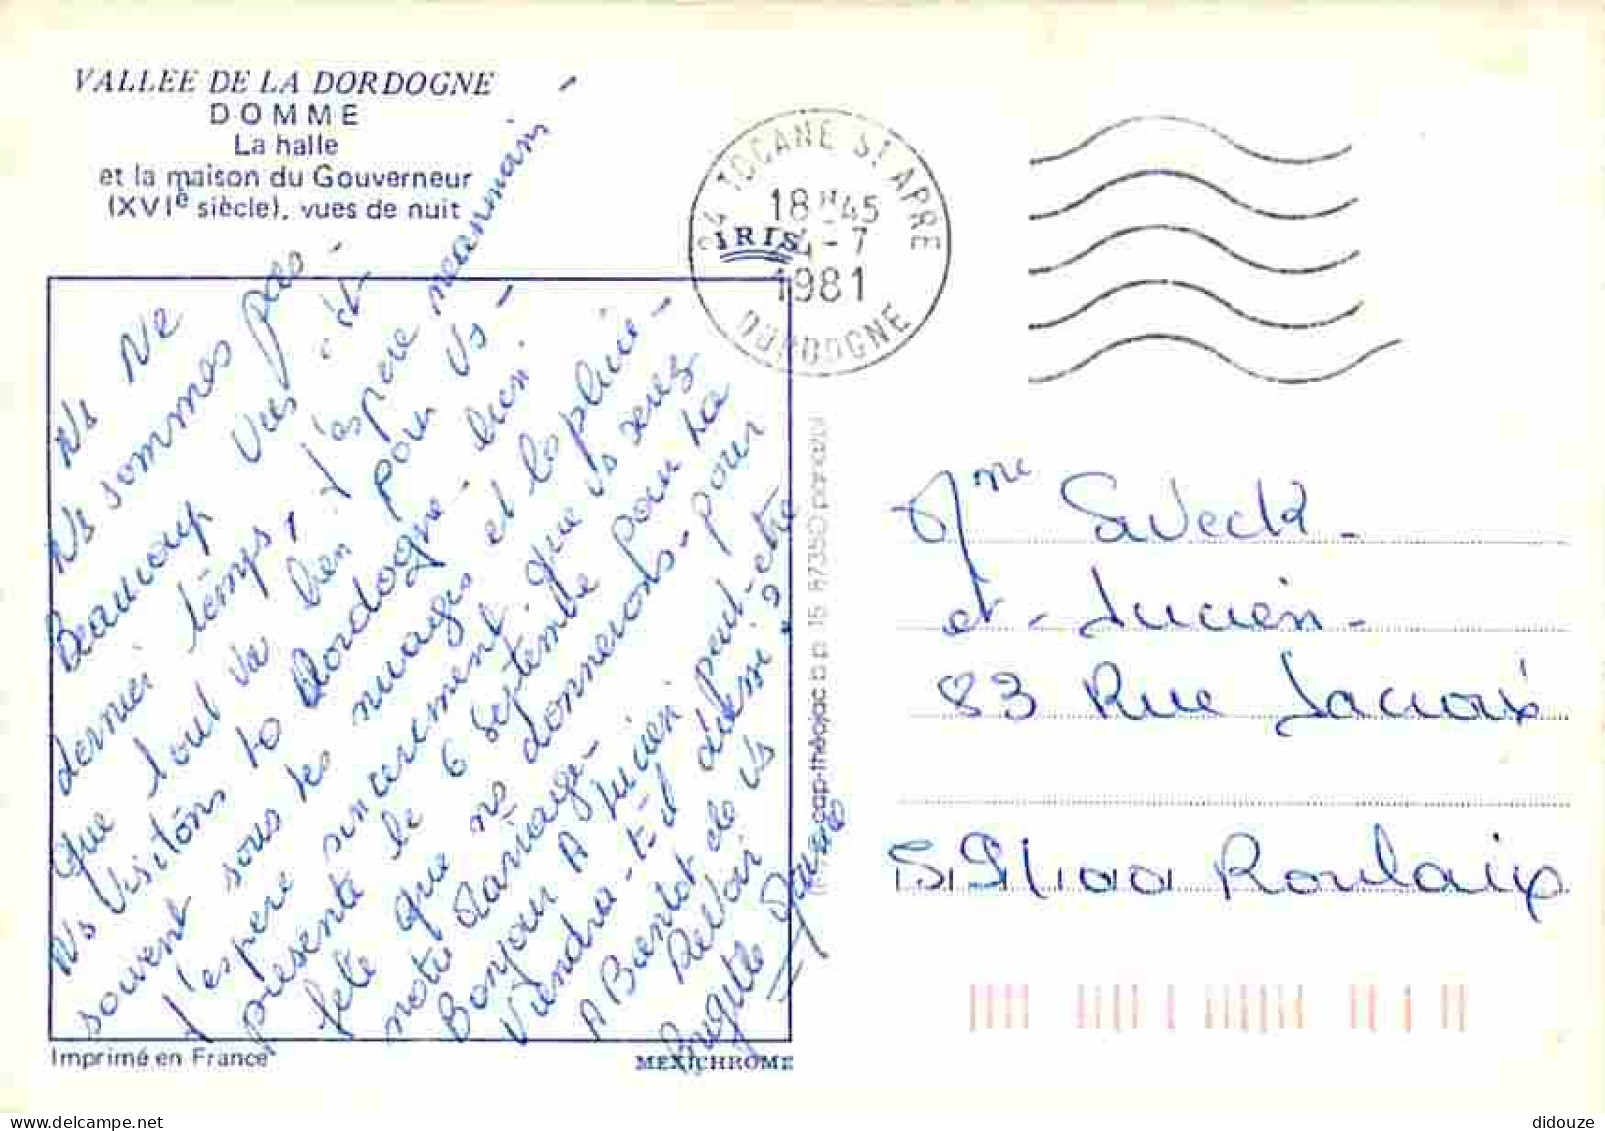 VALLEE DE LA DORDOGNE
DOMME
La halle
et la maison du Gouverneur
(XVIe siècle), vues de nuit
24 TOCANE ST APRE
18H45
4-7
1981
DORDOGNE
IRIS
Ns Ne
Ns sommes pas
Beaucoup vus ct
dernier temps, J'espere neanmoins
que tout va bien pour vs-
Ns Visitons la Dordogne bien
souvent sous les nuages et la pluie-
J'espere sincerement que vs serez
presente le 6 septembre pour la
fete que ns donnerons- pour
notre Mariage-
Bonjour A Lucien peut-etre
Viendra-t-il aussi?
A Bientot de vs
Revoir
Brigitte
Mme Sweck-
et Lucien-
83 Rue Lacroix
59100 Roubaix
cap-théojac
Imprimé en France
MEXICHROME
didouze